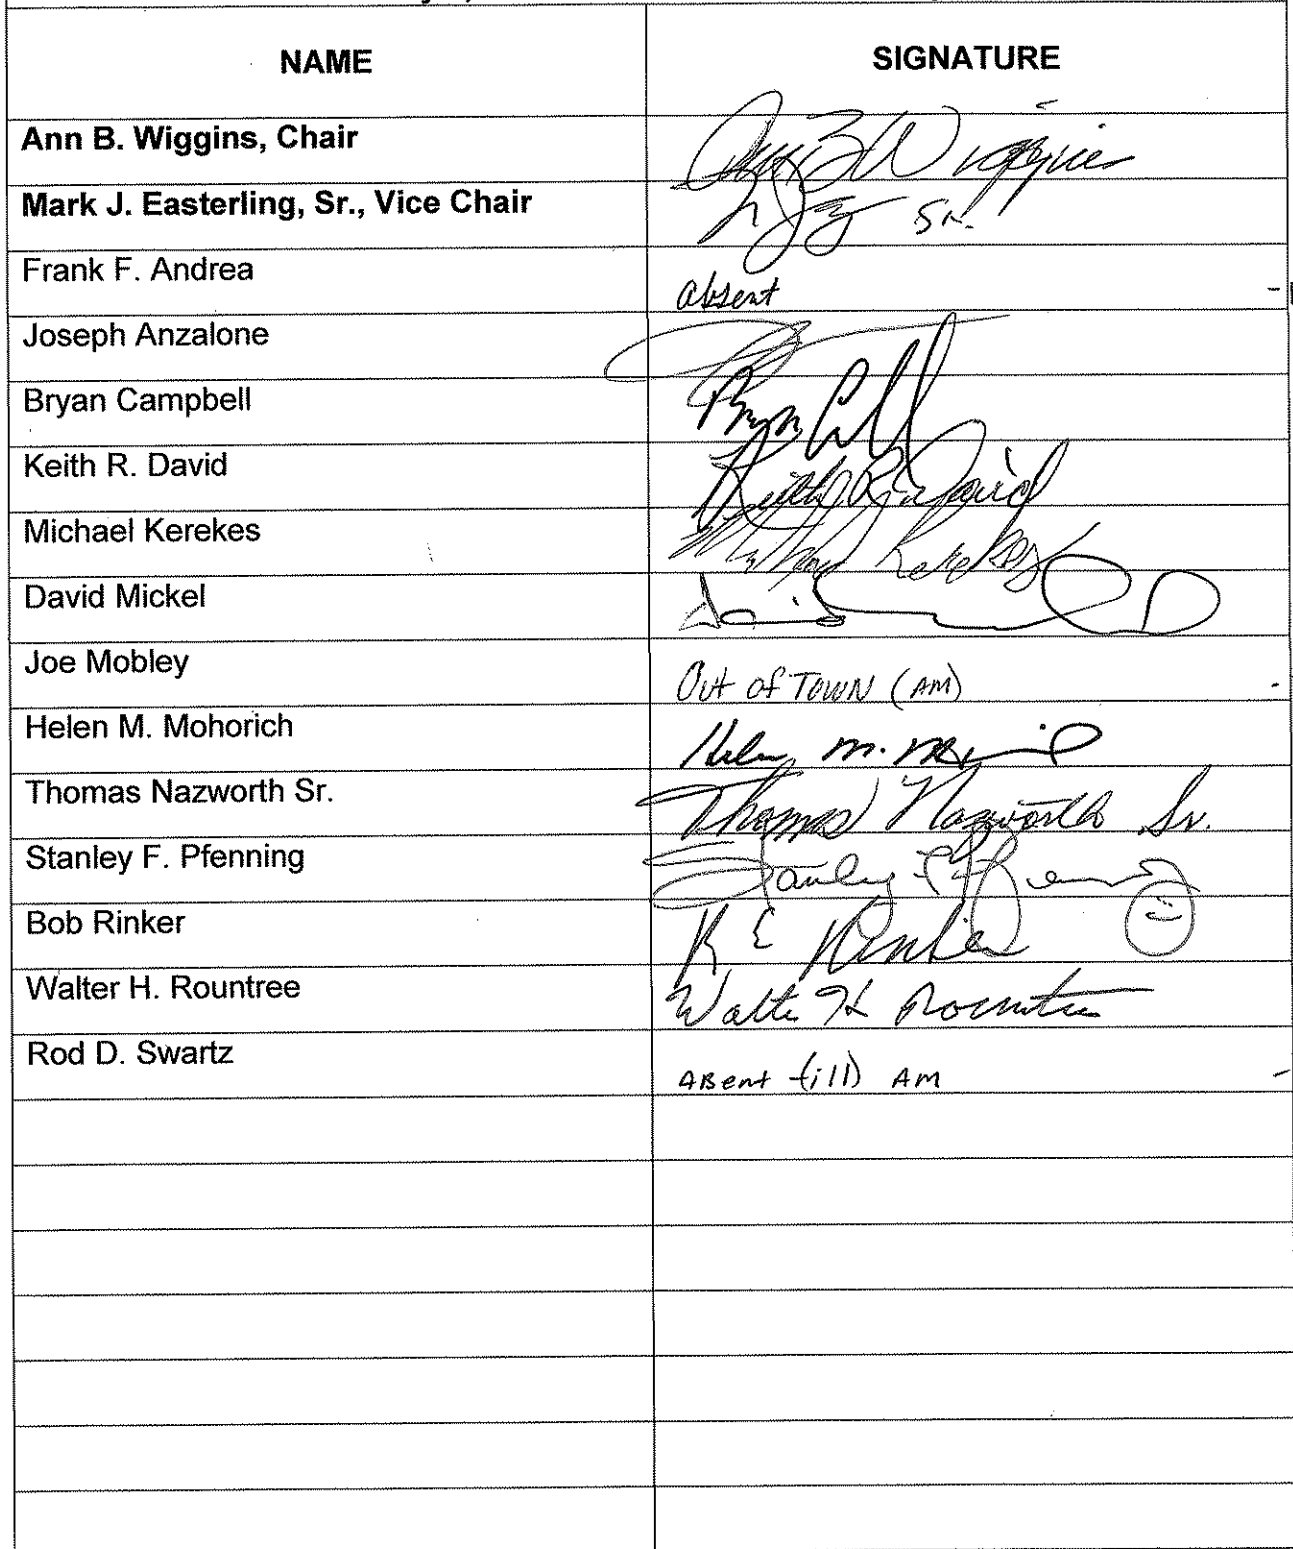 NAME SIGNATURE
Ann B. Wiggins, Chair Ann B W Wiggins
Mark J. Easterling, Sr., Vice Chair Sr.
Frank F. Andrea absent -
Joseph Anzalone
Bryan Campbell Bryan
Keith R. David Keith R. David
Michael Kerekes Michael Kerekes
David Mickel
Joe Mobley Out of TOWN (AM) -
Helen M. Mohorich Helen M.
Thomas Nazworth Sr. Thomas Nazworth Sr.
Stanley F. Pfenning Stanley F Pfenning
Bob Rinker R E Rinker
Walter H. Rountree Walter H Rountree
Rod D. Swartz ABsent (ill) AM -